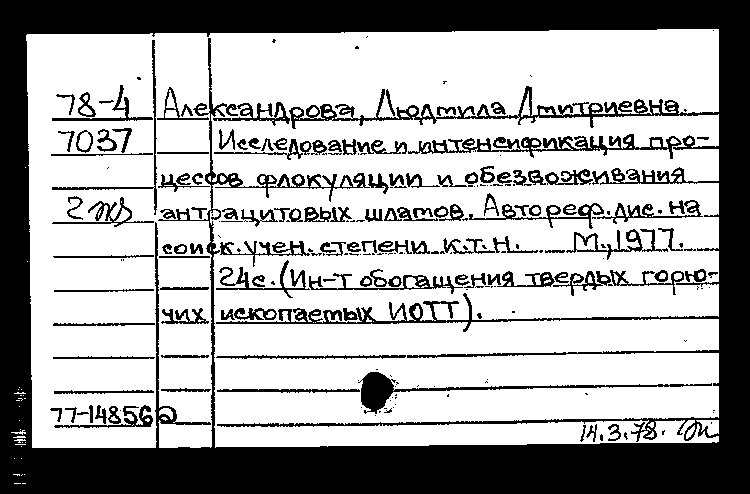 78-4 Александрова, Людмила Дмитриевна.
7037 Исследование и интенсификация про-
цессов флокуляции и обезвоживания
2 экз антрацитовых шламов. Автореф. дис. на
соиск. учен. степени к.т.н. М., 1977.
24с. (Ин-т обогащения твердых горю-
чих ископаемых ИОТТ).
77-14856а
14.3.78.